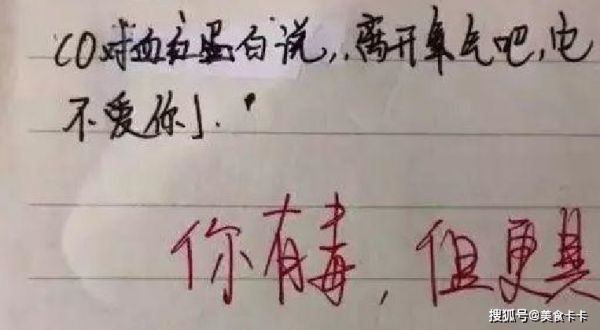 CO对血红蛋白说,离开氧气吧,它
不爱你」.
你有毒,但更具
搜狐号@美食卡卡